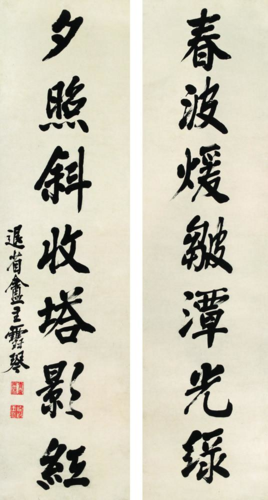 春波煖皺潭光绿
夕照斜收塔影紅
退省盦主雪琴